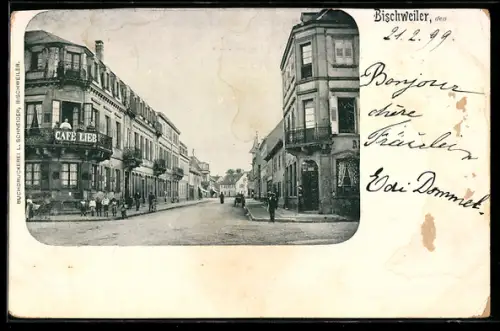 Bischweiler, den
21.2.99.
Bonjour
chère
Fräulein
Edi Dommel.
CAFÉ LIEB
BUCHDRUCKEREI L. SCHNEIDER, BISCHWEILER.